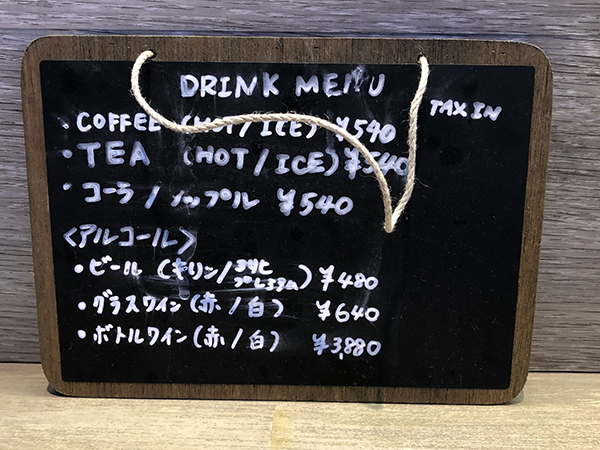 DRINK MENU
TAX IN
・COFFEE (HOT/ICE) ¥540
・TEA (HOT/ICE) ¥540
・コーラ/アップル ¥540
<アルコール>
・ビール (キリン/アサヒプレミアム) ¥480
・グラスワイン(赤/白) ¥640
・ボトルワイン(赤/白) ¥3,880